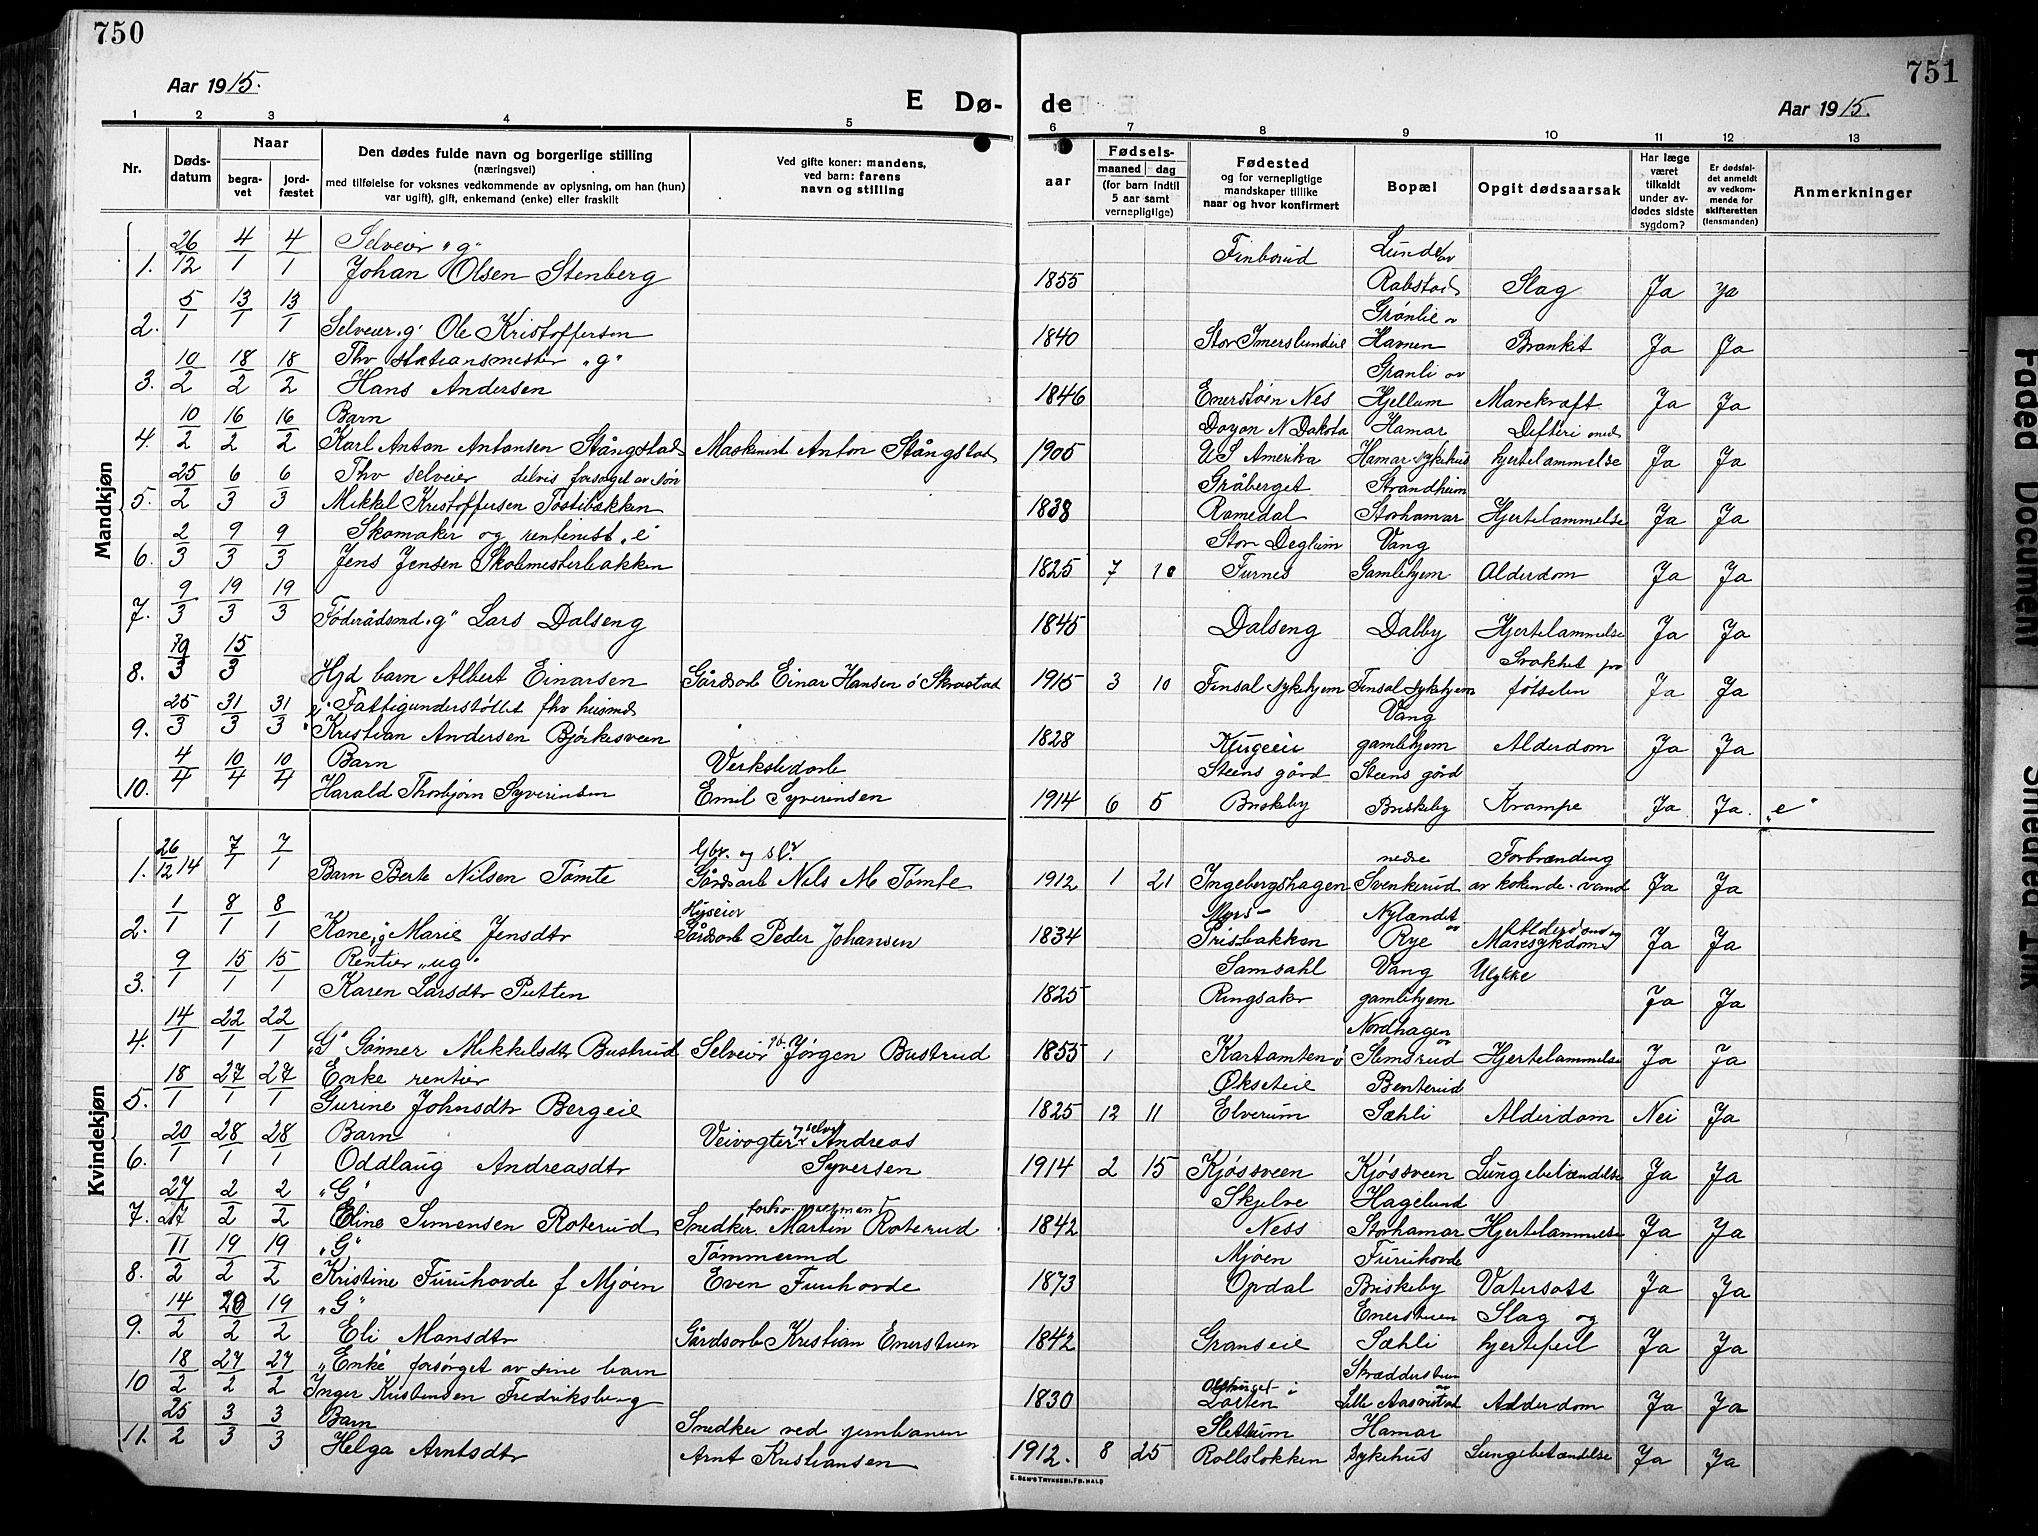 750
Aar 1915.
E Dø-
1 2 3 4 5
Nr.
Døds-
datum
Naar
begra-
vet
jord-
fæstet
Den dødes fulde navn og borgerlige stilling
(næringsvei)
med tilføielse for voksnes vedkommende av oplysning, om han (hun)
var ugift), gift, enkemand (enke) eller fraskilt
Ved gifte koner: mandens,
ved barn: farens
navn og stilling
Mandkjøn
26/12 4/1 4/1 Selveier "g"
1. Johan Olsen Stenberg
2. 5/1 13/1 13/1 Selveier "g" Ole Kristoffersen
10/2 18/2 18/2 Fhv stationsmester "g"
3. Hans Andersen
10/2 16/2 16/2 Barn
4. Karl Anton Antonsen Stångstad Maskinist Anton Stångstad
25/2 6/3 6/3 Fhv selveier delvis forsørget av søn
5. Mikkel Kristoffersen Tostibakken
2/3 9/3 9/3 Skomaker og rentenist "e"
6. Jens Jensen Skolmesterbakken
7. 9/3 19/3 19/3 Føderådsmd "g" Lars Dalseng
8. 10/3 15/3 Hjd barn Albert Einarsen Gårdsarb Einar Hansen ó Skrastad
25/3 31/3 31/3 "e" Fattigunderstøttet fhv husmd
9. Kristian Andersen Bjørkesveen
4/4 10/4 10/4 Barn Verkstedarb
10. Harald Thorbjørn Syverinsen Emil Syverinsen
Kvindekjøn
26/12 14 7/1 7/1 Gbr. og slv
1. Barn Berte Nilsen Tømte Gårdsarb Nils M Tømte
1/1 8/1 8/1 Hyseier
2. Kone "g" Marie Jensdtr Gårdsarb Peder Johansen
9/1 15/1 15/1 Rentier "ug"
3. Karen Larsdtr Putten
4. 14/1 22/1 22/1 "G" Gunner Mikkelsdtr Bustrud Selveier gb. Jørgen Bustrud
18/1 27/1 27/1 Enke rentier
5. Gurine Johnsdtr Bergeie
20/1 28/1 28/1 Barn Veivogter og selv Andreas
6. Oddlaug Andreasdtr Syversen
27/1 2/2 2/2 "G"
7. Eline Simensen Roterud Snedker Martin Roterud
11/2 19/2 19/2 "G" Tømmermd
8. Kristine Furuhovde f Mjøen Even Furuhovde
14/2 20/2 19/2 "G"
9. Eli Monsdtr Gårdsarb Kristian Enerstuen
18/2 27/2 27/2 "Enke" forsørget av sine barn
10 Inger Kristensen Fredriksberg
25/2 3/3 3/3 Barn Snedker ved jernbanen
11. Helga Arntsdtr Arnt Kristiansen
de
Aar 1915.
751
6 7 8 9 10 11 12 13
aar
Fødsels-
maaned dag
(for barn indtil
5 aar samt
vernepligtige)
Fødested
og for vernepligtige
mandskaper tillike
naar og hvor konfirmert
Bopæl
Opgit dødsaarsak
Har læge
været
tilkaldt
under av-
dødes sidste
sygdom?
Er dødsfal-
det anmeldt
av vedkom-
mende for
skifteretten
(lensmanden)
Anmerkninger
Finborud Lunde av
1855 Rabstad Slag Ja Ja
Grønlie av
1840 Stor Imerslundeie Havnen Bronkit Ja Ja
Granli av
1846 Enerstøen Nes Hjellum Marekræft Ja Ja
Doyon N Dakota Hamar Difteri med
1905 US Amerika Hamar sykehus hjertelammelse Ja Ja
Gråberget Strandheim
1838 Romedal Storhamar Hjertelammelse Ja Ja
Stor Deglum Vang
1825 7 10 Furnes Gamlehjem Alderdom Ja Ja
1845 Dalseng Dalby Hjertelammelse Ja Ja
Svakhet fra
1915 3 10 Finsal sykehjem Finsal sykehjem fötselen Ja Ja
Vang
1828 Klugeeie gamlehjem Alderdom Ja Ja
Steens gård Steens gård
1914 6 5 Briskeby Briskeby Krampe Ja Ja. "e"
nedre Forbrænding
1912 1 21 Ingebergshagen Svenkerud av kokende vand Ja Ja
Nylændet av Alderdom og
1834 Prisbakken Rye Mavesykdom Ja Ja
Samsahl Vang Ulykke
1825 Ringsaker gamlehjem Ja Ja
Nordhagen av
1855 1 Kartomten ó Slemsrud Hjertelammelse Ja Ja
Økseteie Benterud
1825 12 11 Elverum Sæhli Alderdom Nei Ja
1914 2 15 Kjøssveen Kjøssveen Lungebetændelse Ja Ja
Skjelve Hagelund
1842 Ness Storhamar Hjertelammelse Ja Ja
Mjøen Furuhovde
1873 Opdal Briskeby Vatersott Ja Ja
Enerstuen Slag og
1842 Granseie Sæhli hjertefeil Ja Ja
Skrædderstuen av
1830 i Løiten Lille Aasvestad Alderdom Ja Ja
Slettum Hamar
1912. 8 25 Rollsløkken sykehus Lungebetændelse Ja Ja
E. SEM'S TRYKKERI, FR.HALD
Faded Document
Smeared Ink